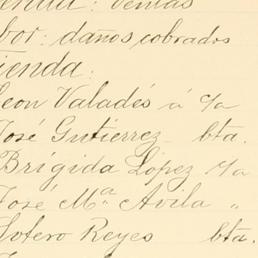 enda: ventas
bor: daños cobrados
ienda:
eon Valadés á c/a
José Gutierrez bta.
Brígida López c/a
José Mª Avila "
Sotero Reyes bta.